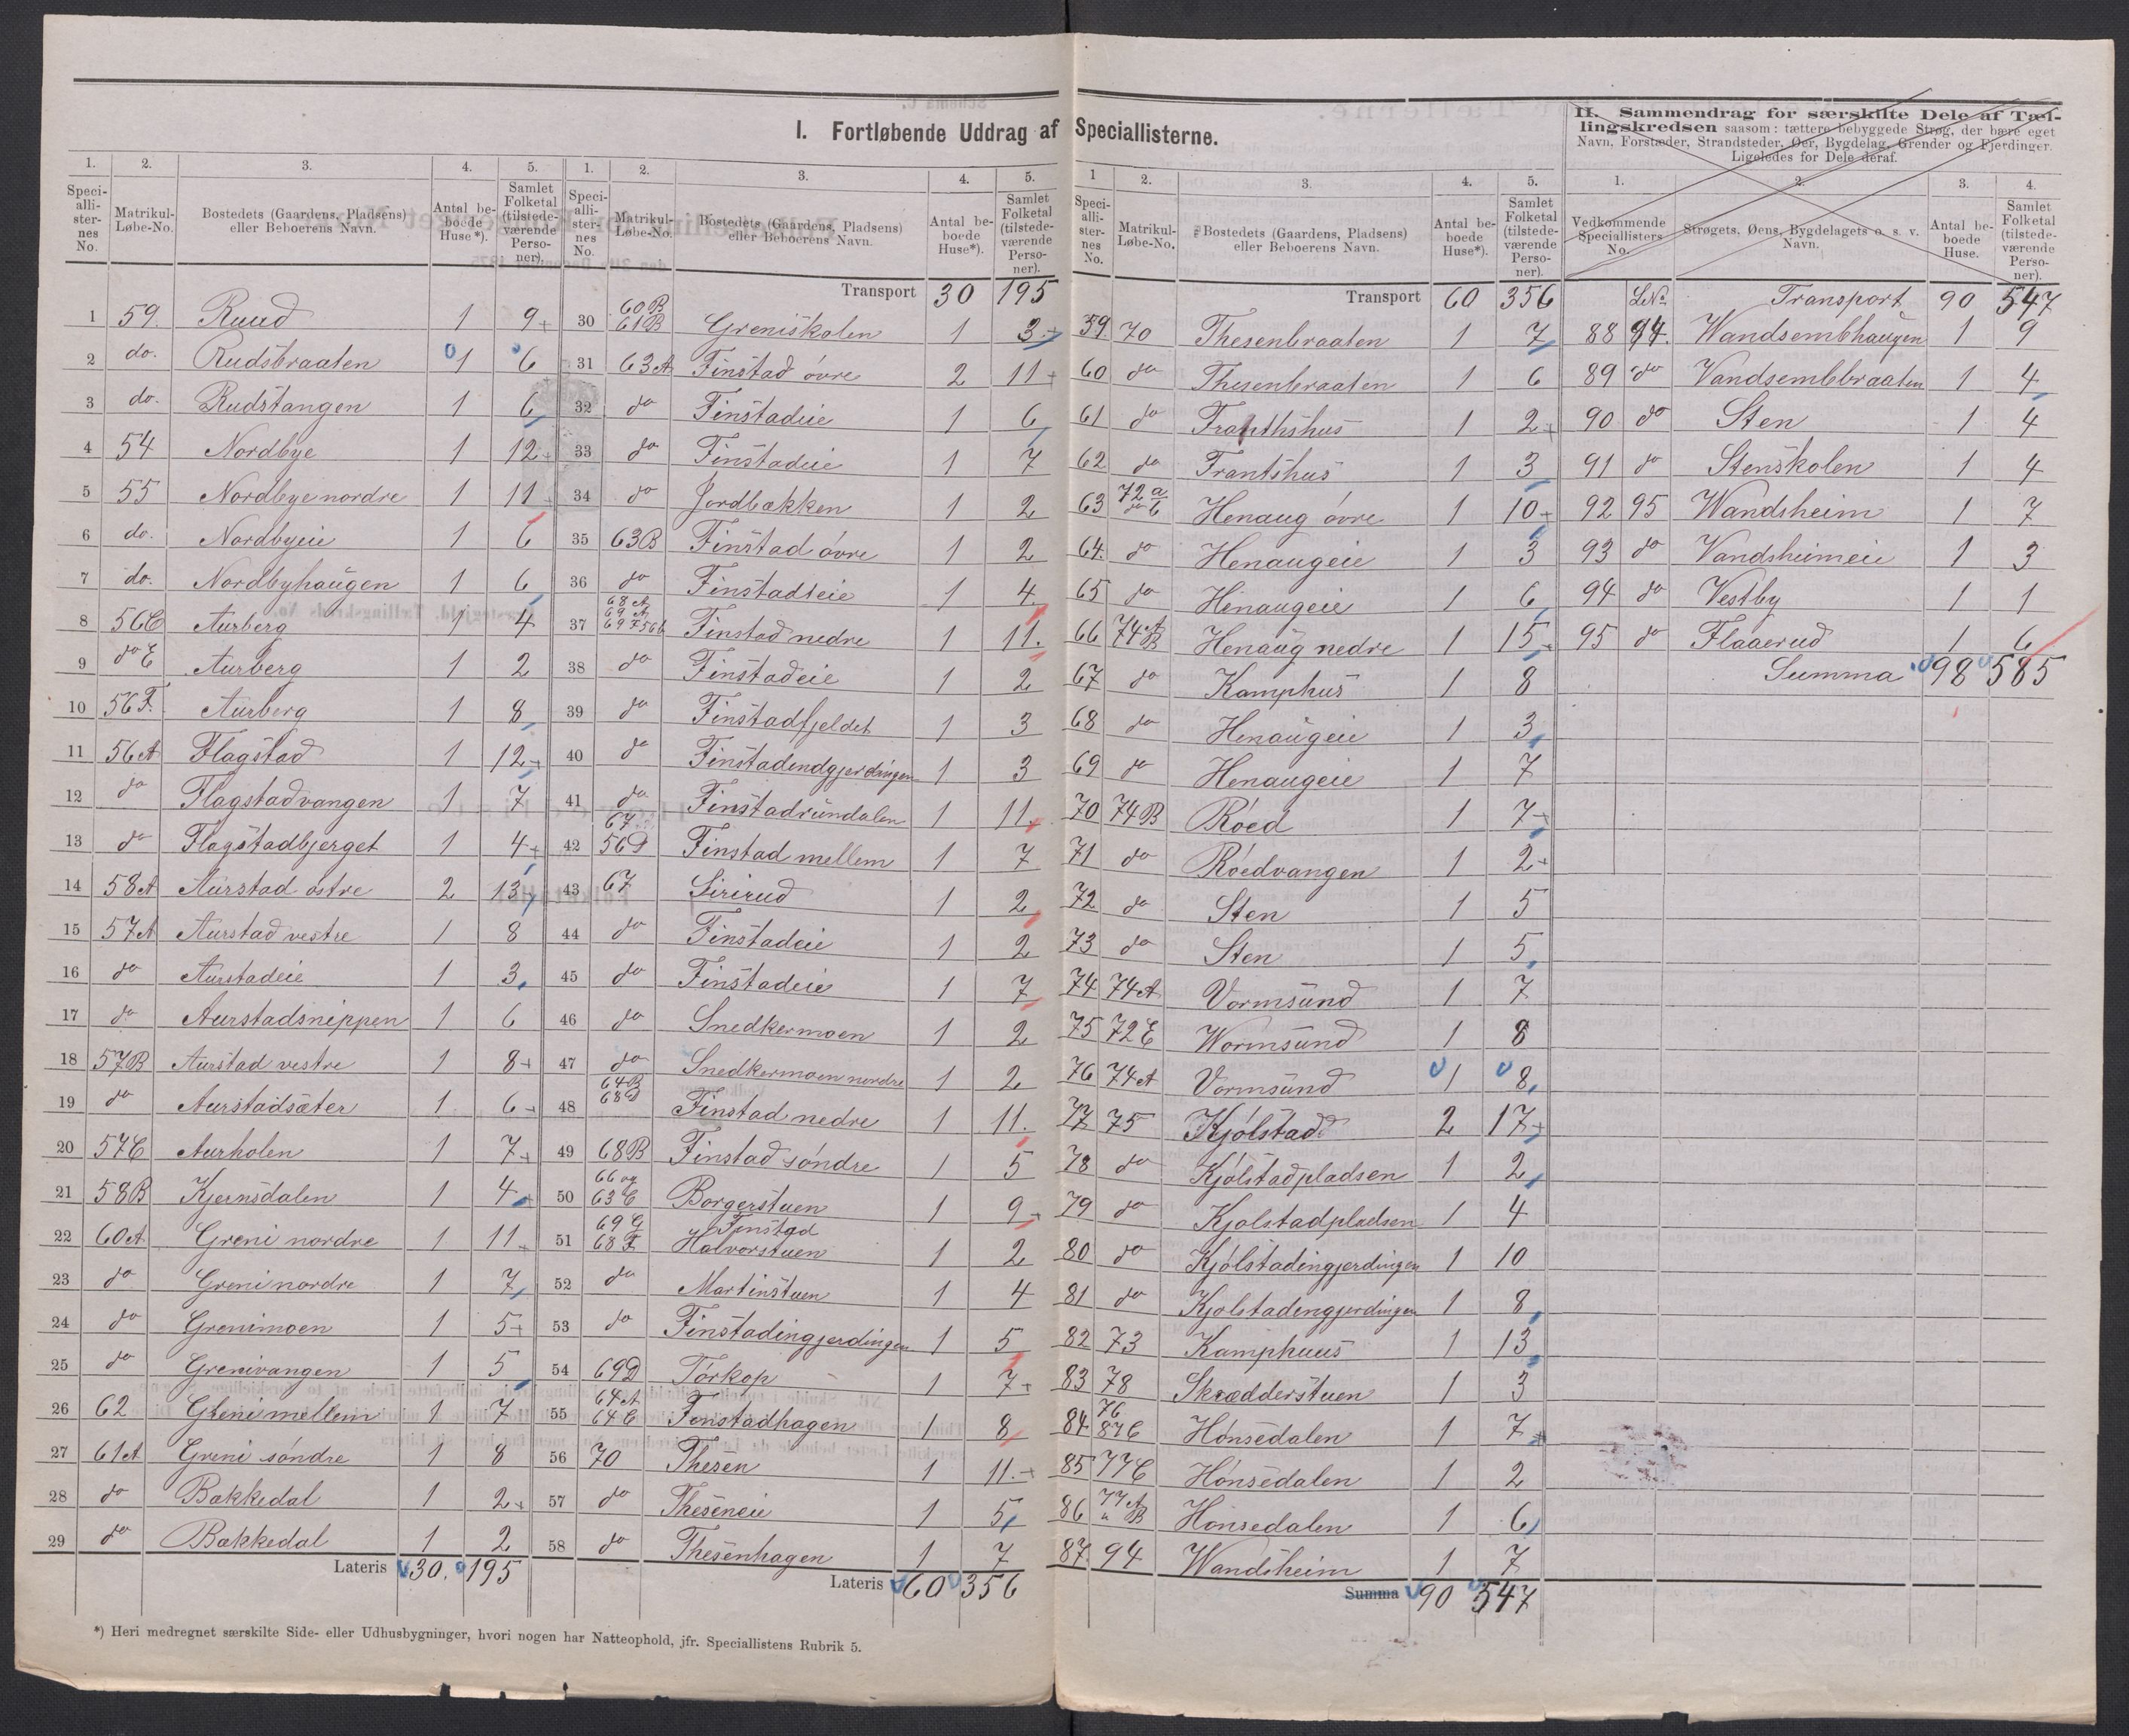 I. Fortløbende Uddrag af Speciallisterne.
1. 2. 3. 4. 5.
Speciallisternes No. Matrikul-Løbe-No. Bostedets (Gaardens, Pladsens) eller Beboerens Navn. Antal beboede Huse*). Samlet Folketal (tilstedeværende Personer).
1 59. Ruud 1 9
2 do. Rudsbraaten 1 6
3 do. Rudstangen 1 6
4 54 Nordbye 1 12
5 55 Nordbye nordre 1 11
6 do. Nordbyeie 1 6
7 do. Nordbyhaugen 1 6
8 56C Aurberg 1 4
9 do E Aurberg 1 2
10 56F. Aurberg 1 8
11 56A Flagstad 1 12
12 do Flagstadvangen 1 7
13 do Flagstadbjerget 1 4
14 58A Aurstad østre 2 13
15 57A Aurstad vestre 1 8
16 do Aurstadeie 1 3
17 do Aurstadsnippen 1 6
18 57B Aurstad vestre 1 8
19 do Aurstadsæter 1 6
20 57C Aurholen 1 7
21 58B Kjernsdalen 1 4
22 60A Greni nordre 1 11
23 do Greni nordre 1 7
24 do Grenimoen 1 5
25 do Grenivangen 1 5
26 62 Greni mellem 1 7
27 61A Greni søndre 1 8
28 do Bakkedal 1 2
29 do Bakkedal 1 2
Lateris 30. 195
*) Heri medregnet særskilte Side- eller Udhusbygninger, hvori nogen har Natteophold, jfr. Speciallistens Rubrik 5.
1. 2. 3. 4. 5.
Speciallisternes No. Matrikul-Løbe-No. Bostedets (Gaardens, Pladsens) eller Beboerens Navn. Antal beboede Huse*). Samlet Folketal (tilstedeværende Personer).
Transport 30 195
30 60B 61B Greniskolen 1 3
31 63A Finstad øvre 2 11
32 do Finstadeie 1 6
33 do Finstadeie 1 7
34 do Jordbakken 1 2
35 63B Finstad øvre 1 2
36 do Finstadeie 1 4
37 68A 69A 69F 56b Finstad nedre 1 11.
38 do Finstadeie 1 2
39 do Finstadfjeldet 1 3
40 do Finstadendgjerdingen 1 3
41 do Finstadrundalen 1 11.
42 67 56D Finstad mellem 1 7
43 67 Sirirud 1 2
44 do Finstadeie 1 2
45 do Finstadeie 1 7
46 do Snedkermoen 1 2
47 do Snedkermoen nordre 1 2
48 64B 68D Finstad nedre 1 11.
49 68B Finstad søndre 1 5
50 66 og 63C Borgerstuen 1 9
51 69G 68F Finstad Halvorstuen 1 2
52 do Martinstuen 1 4
53 do Finstadingjerdingen 1 5
54 69D Torkop 1 7
55 64A 64C Finstadhagen 1 8
56 70 Thesen 1 11.
57 do Theseneie 1 5
58 do Thesenhagen 1 7
Lateris 60 356
1 2. 3. 4. 5.
Speciallisternes No. Matrikul-Løbe-No. Bostedets (Gaardens, Pladsens) eller Beboerens Navn. Antal beboede Huse*). Samlet Folketal (tilstedeværende Personer).
Transport 60 356
59. 70 Thesenbraaten 1 7
60 do Thesenbraaten 1 6
61 do Franthshus 1 2
62 do Frantshus 1 3
63 72 a do b Henaug øvre 1 10
64. do Henaugeie 1 3
65 do Henaugeie 1 6
66 74 A B Henaug nedre 1 15
67 do Kamphus 1 8
68 do Henaugeie 1 3
69 do Henaugeie 1 7
70 74B Røed 1 7
71 do Røedvangen 1 2
72 do Sten 1 5
73 do Sten 1 5
74 74A Vormsund 1 7
75 72E Wormsund 1 8
76 74A Vormsund 1 8
77 75 Kjølstad 2 17
78 do Kjølstadpladsen 1 2
79 do Kjølstadpladsen 1 4
80 do Kjølstadingjerdingen 1 10
81 do Kjølstadengjerdingen 1 8
82 73 Kamphuus 1 13
83 78 Skrædderstuen 1 3
84 76 87C Hønsedalen 1 7
85 77C Hønsedalen 1 2
86 77A " B Hønsedalen 1 6
87. 94 Wandsheim 1 7
Summa 90 547
II. Sammendrag for særskilte Dele af Tællingskredsen saasom: tættere bebyggede Strøg, der bære eget Navn, Forstæder, Strandsteder, Øer, Bygdelag, Grender og Fjerdinger. Ligeledes for Dele deraf.
1. 2. 3. 4.
Vedkommende Speciallisters No. Strøgets, Øens, Bygdelagets o. s. v. Navn. Antal beboede Huse. Samlet Folketal (tilstedeværende Personer).
LNo Transport 90 547
88 94. Wandsembhaugen 1 9
89 do Vandsembbraaten 1 4
90 do Sten 1 4
91 do Stenskolen 1 4
92 95 Wandsheim 1 7
93 do Vandsheimeie 1 3
94 do Vestby 1 1
95 do Flaaerud 1 6
Summa 98 585